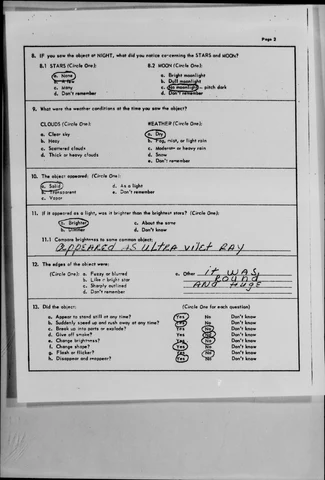 Page 2
8. IF you saw the object at NIGHT, what did you notice concerning the STARS and MOON?
8.1 STARS (Circle One): 8.2 MOON (Circle One):
a. None a. Bright moonlight
b. A few b. Dull moonlight
c. Many c. No moonlight – pitch dark
d. Don't remember d. Don't remember
9. What were the weather conditions at the time you saw the object?
CLOUDS (Circle One): WEATHER (Circle One):
a. Clear sky a. Dry
b. Hazy b. Fog, mist, or light rain
c. Scattered clouds c. Moderate or heavy rain
d. Thick or heavy clouds d. Snow
e. Don't remember
10. The object appeared: (Circle One):
a. Solid d. As a light
b. Transparent e. Don't remember
c. Vapor
11. If it appeared as a light, was it brighter than the brightest stars? (Circle One):
a. Brighter c. About the same
b. Dimmer d. Don't know
11.1 Compare brightness to some common object:
APPEARED AS ULTRA VILET RAY
12. The edges of the object were:
(Circle One): a. Fuzzy or blurred e. Other IT WAS
b. Like a bright star ROUND
c. Sharply outlined AND HUGE
d. Don't remember
13. Did the object: (Circle One for each question)
a. Appear to stand still at any time? Yes No Don't know
b. Suddenly speed up and rush away at any time? Yes No Don't know
c. Break up into parts or explode? Yes No Don't know
d. Give off smoke? Yes No Don't know
e. Change brightness? Yes No Don't know
f. Change shape? Yes No Don't know
g. Flash or flicker? Yes No Don't know
h. Disappear and reappear? Yes No Don't know